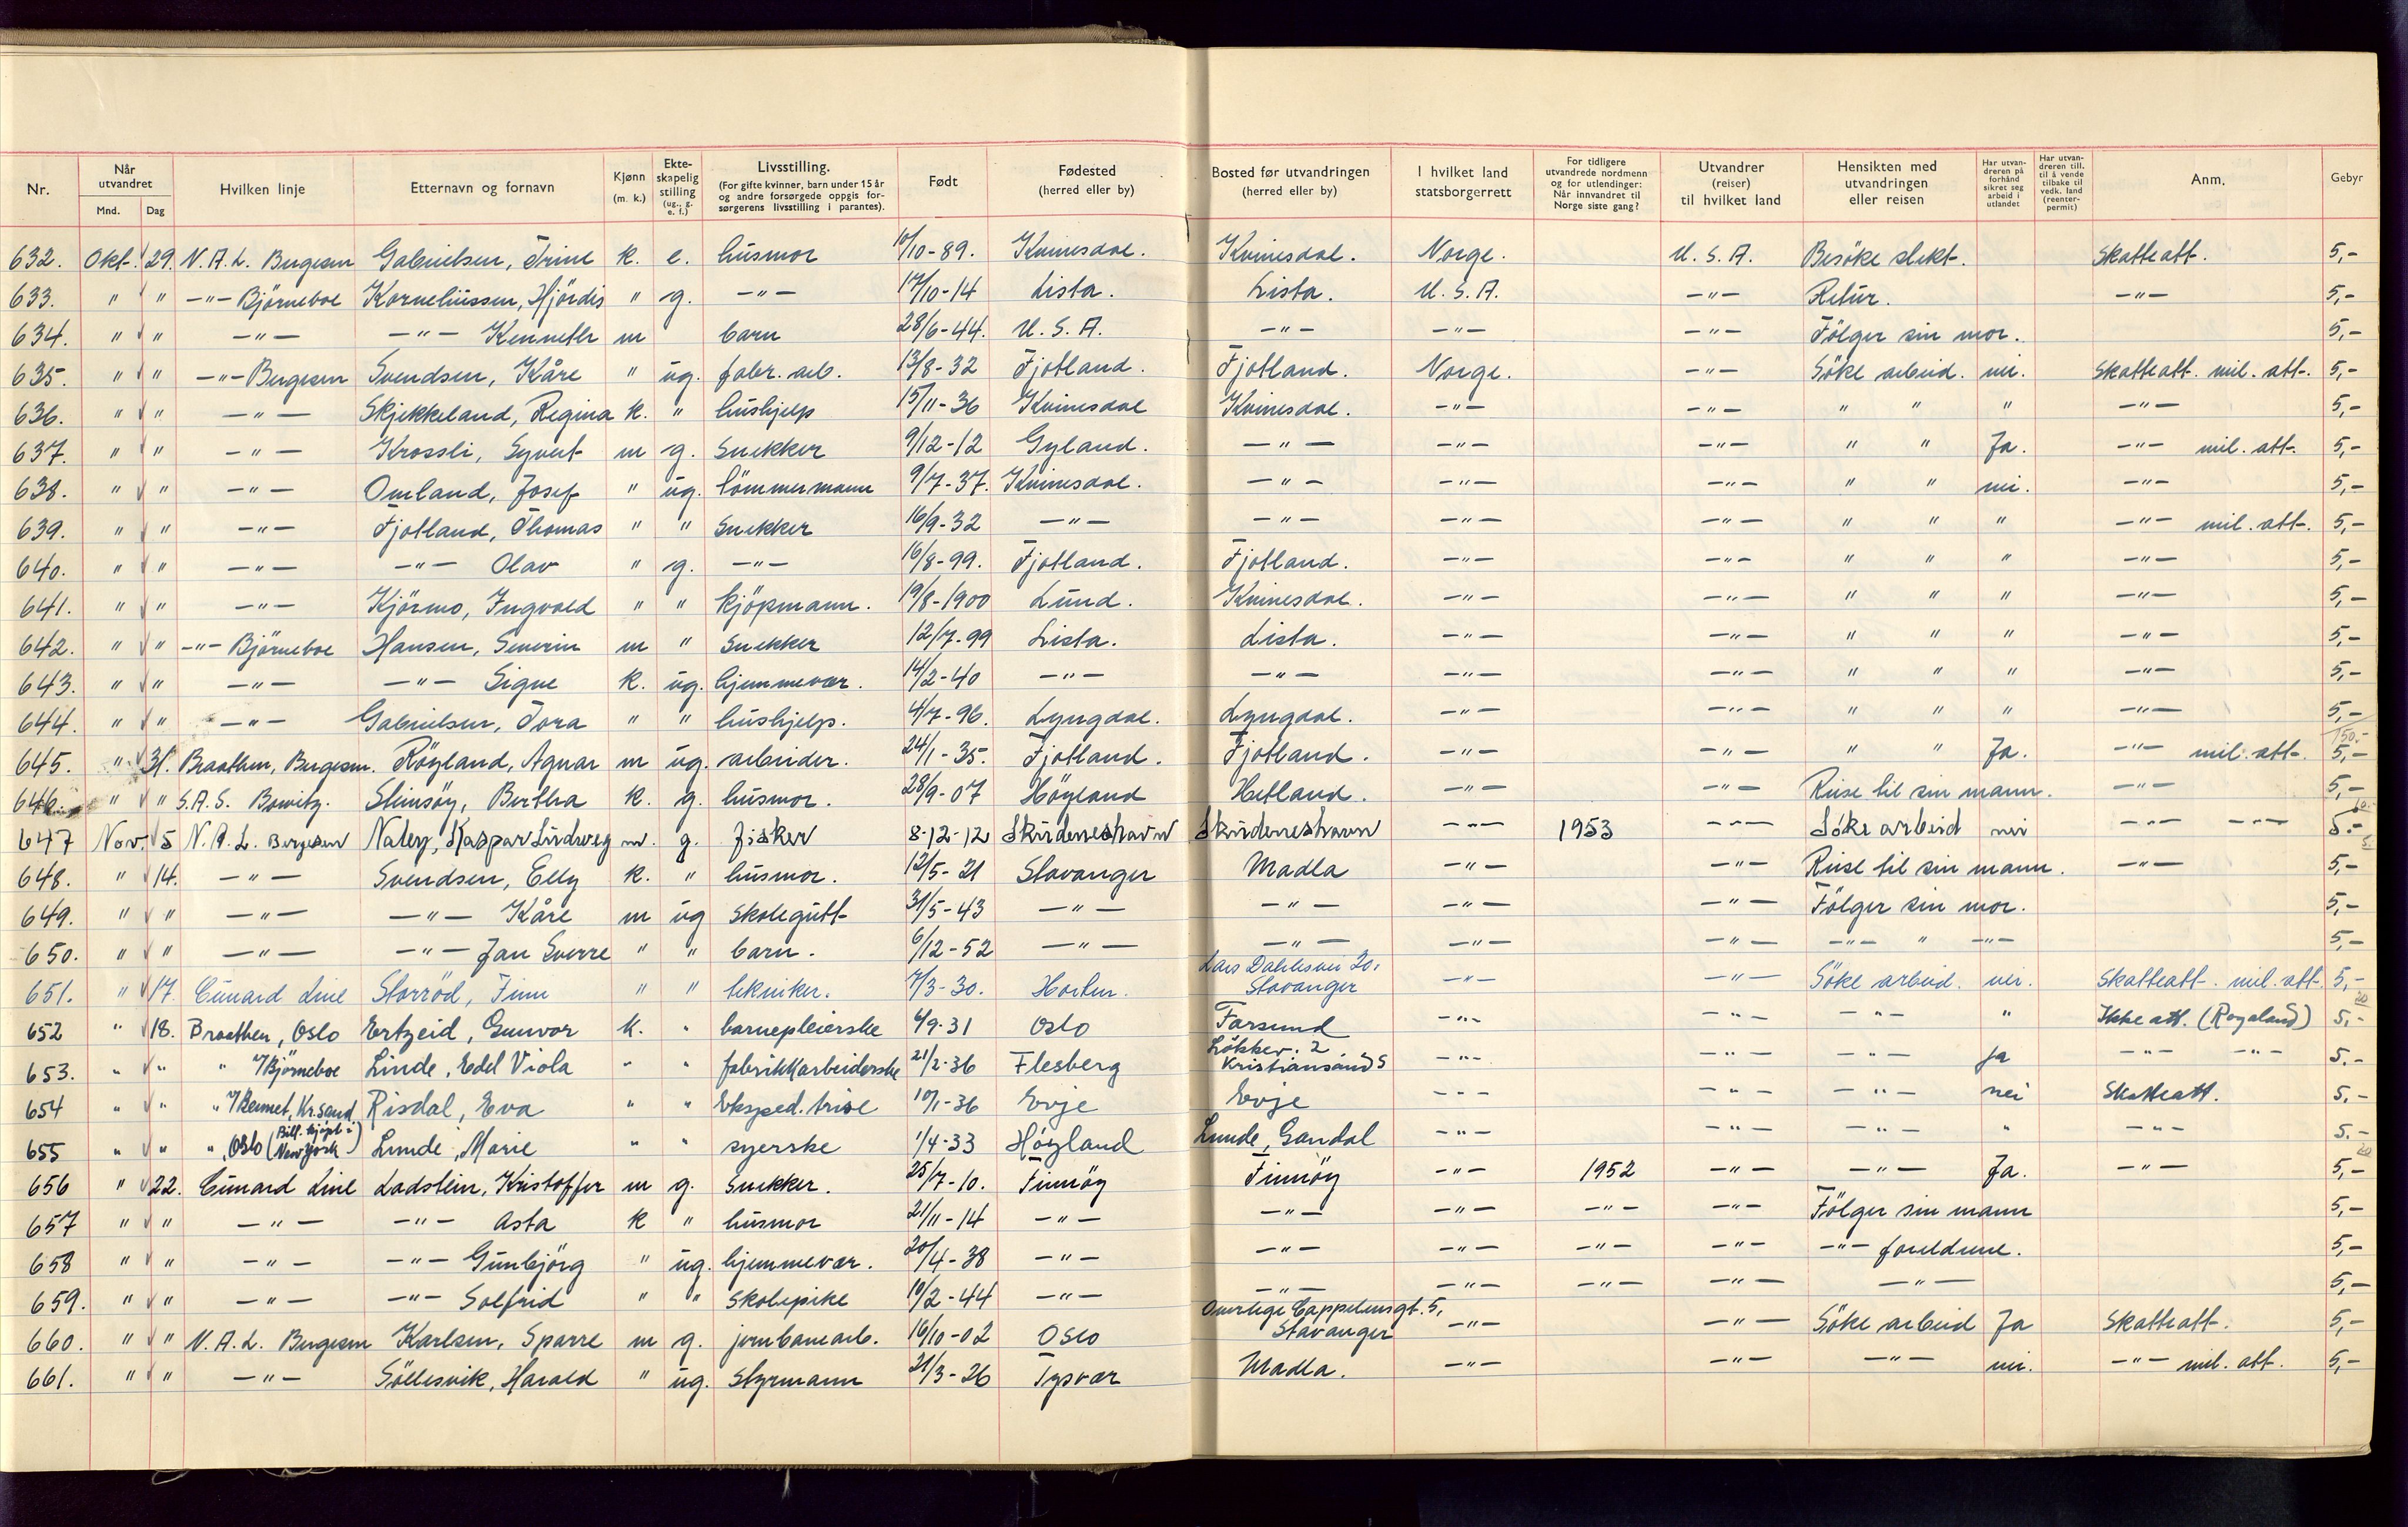 Nr. | Når utvandret Mnd. Dag | Hvilken linje | Etternavn og fornavn | Kjønn (m. k.) | Ekteskapelig stilling (ug., g. e. f.) | Livsstilling. (For gifte kvinner, barn under 15 år og andre forsørgede oppgis forsørgerens livsstilling i parantes). | Født | Fødested (herred eller by) | Bosted før utvandringen (herred eller by) | I hvilket land statsborgerrett | For tidligere utvandrede nordmenn og for utlendinger: Når innvandret til Norge siste gang? | Utvandrer (reiser) til hvilket land | Hensikten med utvandringen eller reisen | Har utvandreren på forhånd sikret seg arbeid i utlandet | Har utvandreren till. til å vende tilbake til vedk. land (reenter-permit) | Anm. | Gebyr
632. Okt. 29. N.A.L. Bergesen Gabrielsen, Trine k. e. husmor 10/10-89. Kvinesdal. Kvinesdal. Norge. U.S.A. Besøke slekt. Skatteatt. 5,-
633. " " -"- Björneboe Korneliussen, Hjördis " g. -"- 17/10-14 Lista. Lista. U.S.A. -"- Retur. -"- 5,-
634. " " -"- -"- Kenneth m barn 28/6-44. U.S.A. -"- -"- -"- Fölger sin mor. 5,-
635. " " -"- Bergesen Svendsen, Kåre " ug. fabr. arb. 13/8-32 Fjotland. Fjotland. Norge. -"- Söke arbeid. nei. Skatteatt. mil. att. 5,-
636. " " -"- Skjekkeland, Regina k. " hushjelp 15/11-36 Kvinesdal Kvinesdal. -"- -"- " " " -"- 5,-
637. " " -"- Krossli, Syvert m g. Snekker 9/12-12 Gyland. -"- -"- -"- " " Ja. -"- mil. att. 5,-
638. " " -"- Omland, Josef " ug. tömmermann 9/7-37. Kvinesdal. -"- -"- -"- " " nei. -"- 5,-
639. " " -"- Fjotland, Thomas " " Snekker 16/9-32 -"- -"- -"- -"- " " " -"- mil. att. 5,-
640. " " -"- -"- Olav " g. -"- 16/8-99. Fjotland. Fjotland. -"- -"- " " " -"- 5,-
641. " " -"- Kjörmo, Ingvald " " kjöpmann. 19/8-1900 Lund. Kvinesdal. -"- -"- " " " -"- 5,-
642. " " -"- Björneboe Hansen, Severin m " Snekker 12/7-99 Lista. Lista. -"- -"- " " " -"- 5,-
643. " " -"- -"- Signe k. ug. hjemmevær. 14/2-40 -"- -"- -"- -"- " " " -"- 5,-
644. " " -"- Gabrielsen, Tora " " hushjelp. 4/7-96. Lyngdal. Lyngdal. -"- -"- " " " -"- 5,-
150.-
645. " 31. Braathen, Bergesen. Röyland, Agnar m ug. arbeider. 24/1-35. Fjotland. Fjotland. -"- -"- " " Ja. -"- mil. att. 5,-
646. " " S.A.S. Bowitz. Slimsöy, Bertha k. g. husmor. 28/9-07 Höyland Hetland. -"- -"- Reise til sin mann. -"- 5,-
10.-
647 Nov. 5 N.A.L. Bergesen Natey, Kaspar Ludvig m. g. fisker 8-12-12 Skudeneshavn Skudeneshavn -"- 1953 -"- Söke arbeid nei -"- -"- 5.-
5.
648. " 14. -"- Svendsen, Elly k. " husmor. 12/5-21 Stavanger Madla -"- -"- Reise til sin mann. -"- 5,-
649. " " -"- -"- Kåre m ug skolegutt 31/5-43 -"- -"- -"- -"- Fölger sin mor. 5,-
650. " " -"- -"- Jan Sverre " " barn. 6/12-52 -"- -"- -"- -"- -"- " -"- 5,-
651. " 17. Cunard Line Storröd, Finn " " tekniker. 7/3-30. Horten. Lars Dahlesvei 20, Stavanger -"- -"- Söke arbeid. nei. Skatteatt. mil. att. 5,-
20
652 " 18. Braathen, Oslo Ertzeid, Gunvor k. " barnepleierske 6/9-31 Oslo Farsund -"- -"- -"- " Ikke att. (Rogaland) 5.-
653. " " " v/Björneboe Linde, Edel Viola " " fabrikkarbeiderske 21/2-36 Flesberg Lökkev. 2 Kristiansand S -"- -"- -"- Ja -"- -"- 5.-
654 " " " v/Bennet, Kr.sand Risdal, Eva " " Eksped.trise 10/1-36 Evje Evje -"- -"- -"- nei Skatteatt. 5.-
655 " " ", Oslo (Bill. kjöpt i New York) Lunde, Marie " " syerske 1/4-33 Höyland Lunde, Gandal -"- -"- -"- " -"- 5.-
20
656 " 22. Cunard Line Ladstein, Kristoffer m g. Snekker. 25/7-10. Finnöy Finnöy -"- 1952 -"- -"- Ja. -"- 5,-
657 " " -"- -"- Asta k " husmor 21/11-14 -"- -"- -"- -"- -"- Fölger sin mann 5,-
658 " " -"- -"- Gunbjörg " ug. hjemmevær. 20/4-38 -"- -"- -"- -"- -"- -"- foreldrene. 5,-
659. " " -"- -"- Solfrid " " Skolepike 10/2-44 -"- -"- -"- -"- -"- -"- 5,-
660. " " N.A.L. Bergesen Karlsen, Sparre m g. jernbanearb. 16/10-02 Oslo Cappelensgt. 5, Stavanger -"- -"- Söke arbeid Ja Skatteatt. 5,-
661. " " -"- Söllesvik, Harald " ug. Styrmann 21/3-26 Tysvær Madla. -"- -"- -"- nei. -"- mil. att. 5,-